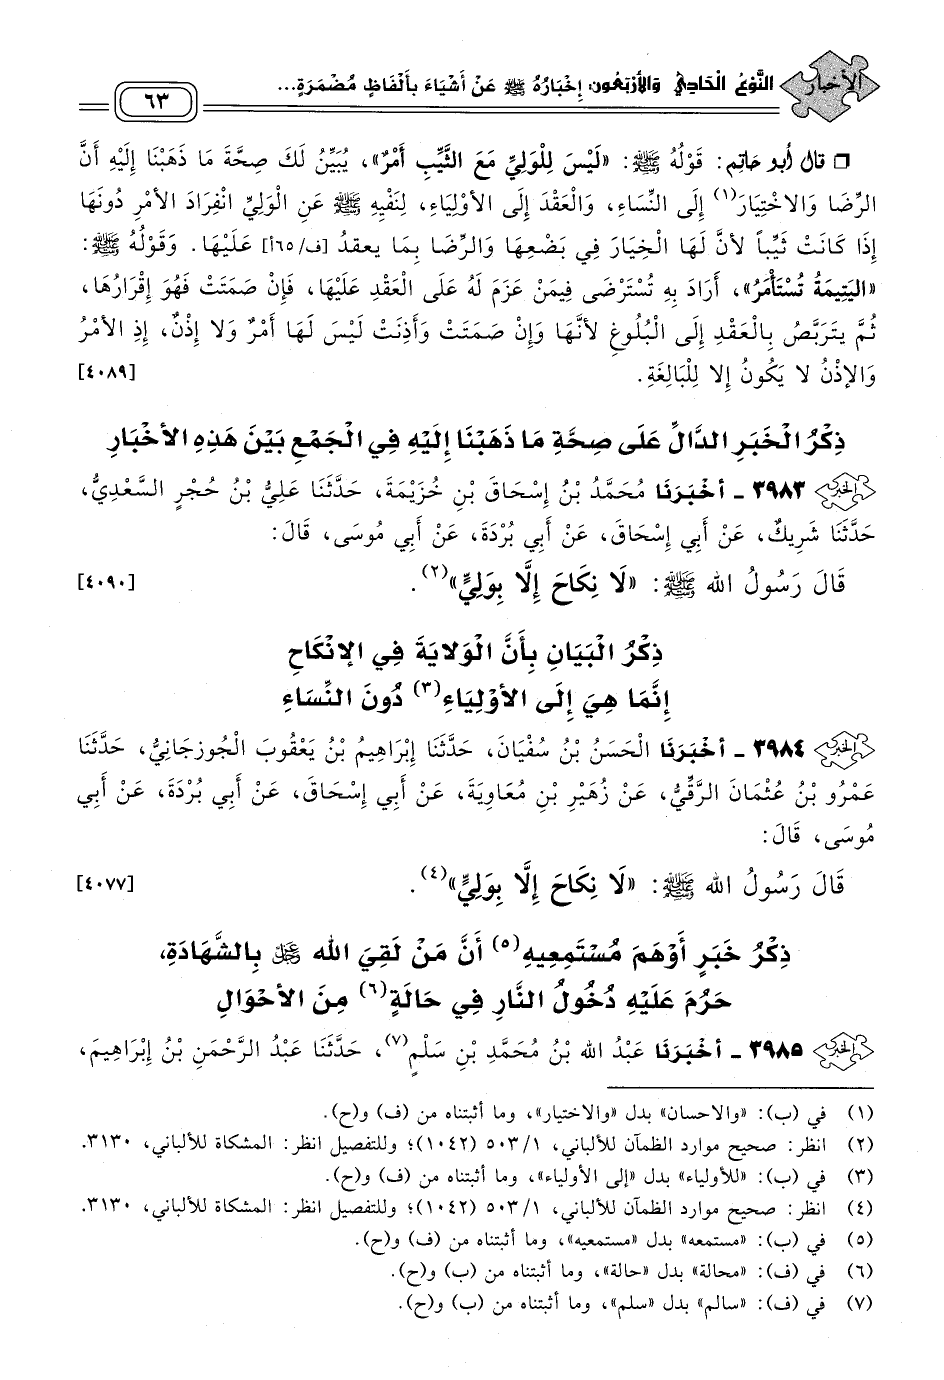 الأخبار
النَّوْعُ الْحَادِي وَالأَرْبَعُون: إِخْبَارُهُ ﷺ عَنْ أَشْيَاءَ بِأَلْفَاظٍ مُضْمَرَةٍ...
٦٣
□ قال أبو حاتم: قَوْلُهُ ﷺ: «لَيْسَ لِلْوَلِيِّ مَعَ الثَّيِّبِ أَمْرٌ»، يُبَيِّنُ لَكَ صِحَّةَ مَا ذَهَبْنَا إِلَيْهِ أَنَّ
الرِّضَا وَالاخْتِيَارَ(١) إِلَى النِّسَاءِ، وَالْعَقْدَ إِلَى الأَوْلِيَاءِ، لِنَفْيِهِ ﷺ عَنِ الْوَلِيِّ انْفِرَادَ الأَمْرِ دُونَهَا
إِذَا كَانَتْ ثَيِّباً لأَنَّ لَهَا الْخِيَارَ فِي بَضْعِهَا وَالرِّضَا بِمَا يعقدُ [ف/٦٥أ] عَلَيْهَا. وَقَوْلُهُ ﷺ:
«الْيَتِيمَةُ تُسْتَأْمَرُ»، أَرَادَ بِهِ تُسْتَرْضَى فِيمَنْ عَزَمَ لَهُ عَلَى الْعَقْدِ عَلَيْهَا، فَإِنْ صَمَتَتْ فَهُوَ إِقْرَارُهَا،
ثُمَّ يَتَرَبَّصُ بِالْعَقْدِ إِلَى الْبُلُوغِ لأَنَّهَا وَإِنْ صَمَتَتْ وَأَذِنَتْ لَيْسَ لَهَا أَمْرٌ وَلا إِذْنٌ، إِذِ الأَمْرُ
وَالإِذْنُ لا يَكُونُ إِلا لِلْبَالِغَةِ. [٤٠٨٩]
ذِكْرُ الْخَبَرِ الدَّالِّ عَلَى صِحَّةِ مَا ذَهَبْنَا إِلَيْهِ فِي الْجَمْعِ بَيْنَ هَذِهِ الأَخْبَارِ
الخبر ٣٩٨٣ - أَخْبَرَنَا مُحَمَّدُ بْنُ إِسْحَاقَ بْنِ خُزَيْمَةَ، حَدَّثَنَا عَلِيُّ بْنُ حُجْرٍ السَّعْدِيُّ،
حَدَّثَنَا شَرِيكٌ، عَنْ أَبِي إِسْحَاقَ، عَنْ أَبِي بُرْدَةَ، عَنْ أَبِي مُوسَى، قَالَ:
قَالَ رَسُولُ الله ﷺ: «لَا نِكَاحَ إِلَّا بِوَلِيٍّ»(٢). [٤٠٩٠]
ذِكْرُ الْبَيَانِ بِأَنَّ الْوَلايَةَ فِي الإِنْكَاحِ
إِنَّمَا هِيَ إِلَى الأَوْلِيَاءِ(٣) دُونَ النِّسَاءِ
الخبر ٣٩٨٤ - أَخْبَرَنَا الْحَسَنُ بْنُ سُفْيَانَ، حَدَّثَنَا إِبْرَاهِيمُ بْنُ يَعْقُوبَ الْجُوزجَانِيُّ، حَدَّثَنَا
عَمْرُو بْنُ عُثْمَانَ الرَّقِّيُّ، عَنْ زُهَيْرِ بْنِ مُعَاوِيَةَ، عَنْ أَبِي إِسْحَاقَ، عَنْ أَبِي بُرْدَةَ، عَنْ أَبِي
مُوسَى، قَالَ:
قَالَ رَسُولُ الله ﷺ: «لَا نِكَاحَ إِلَّا بِوَلِيٍّ»(٤). [٤٠٧٧]
ذِكْرُ خَبَرٍ أَوْهَمَ مُسْتَمِعِيهِ(٥) أَنَّ مَنْ لَقِيَ الله ﷻ بِالشَّهَادَةِ،
حَرُمَ عَلَيْهِ دُخُولُ النَّارِ فِي حَالَةٍ(٦) مِنَ الأَحْوَالِ
الخبر ٣٩٨٥ - أَخْبَرَنَا عَبْدُ الله بْنُ مُحَمَّدِ بْنِ سَلْمٍ(٧)، حَدَّثَنَا عَبْدُ الرَّحْمَنِ بْنُ إِبْرَاهِيمَ،
(١) في (ب): «والاحسان» بدل «والاختيار»، وما أثبتناه من (ف) و(ح).
(٢) انظر: صحيح موارد الظمآن للألباني، ٥٠٣/١ (١٠٤٢)؛ وللتفصيل انظر: المشكاة للألباني، ٣١٣٠.
(٣) في (ب): «للأولياء» بدل «إلى الأولياء»، وما أثبتناه من (ف) و(ح).
(٤) انظر: صحيح موارد الظمآن للألباني، ٥٠٣/١ (١٠٤٢)؛ وللتفصيل انظر: المشكاة للألباني، ٣١٣٠.
(٥) في (ب): «مستمعه» بدل «مستمعيه»، وما أثبتناه من (ف) و(ح).
(٦) في (ف): «محالة» بدل «حالة»، وما أثبتناه من (ب) و(ح).
(٧) في (ف): «سالم» بدل «سلم»، وما أثبتناه من (ب) و(ح).